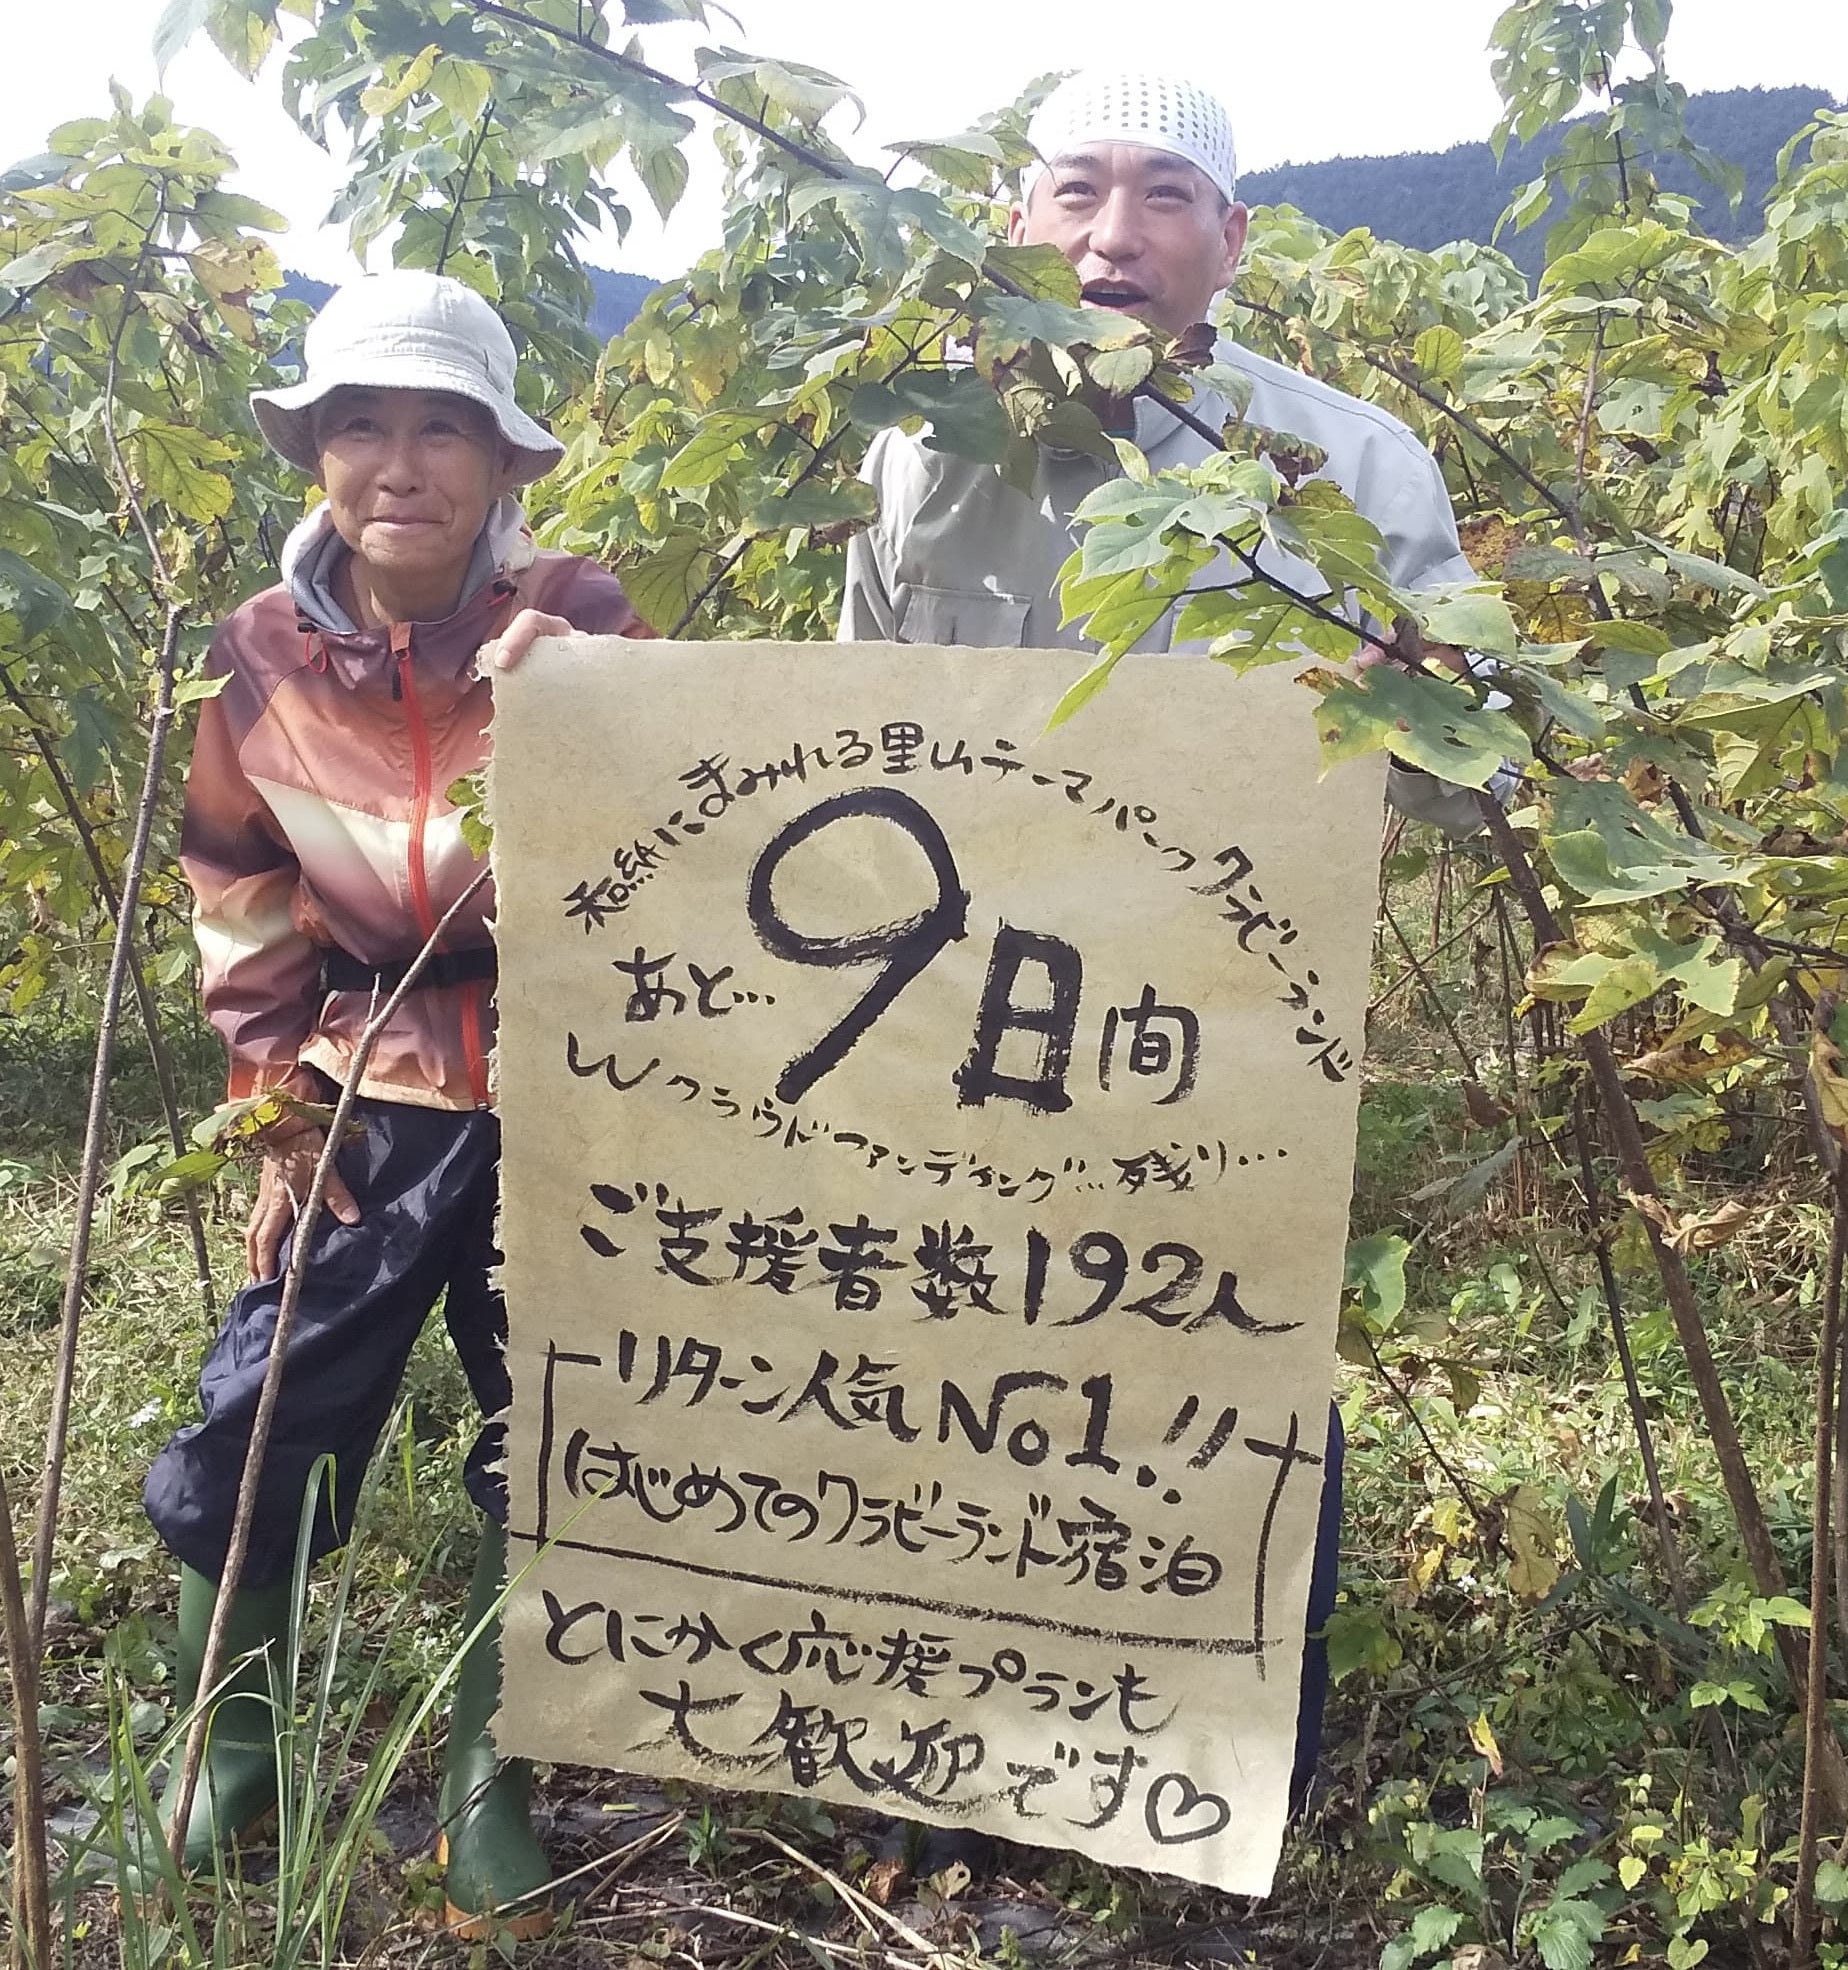 和紙にまみれる里山テーマパーククラビーランド
あと…9日間
Wクラウドファンディング…残り…
ご支援者数192人
リターン人気No1!!
はじめてのクラビーランド宿泊
とにかく応援プランも
大歓迎です♡